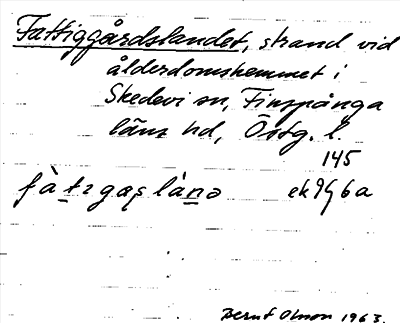 Fattiggårdslandet, strand vid
ålderdomshemmet i
Skedevi sn, Finspånga
läns hd, Östg. l.
145
Bernt Olsson 1963.